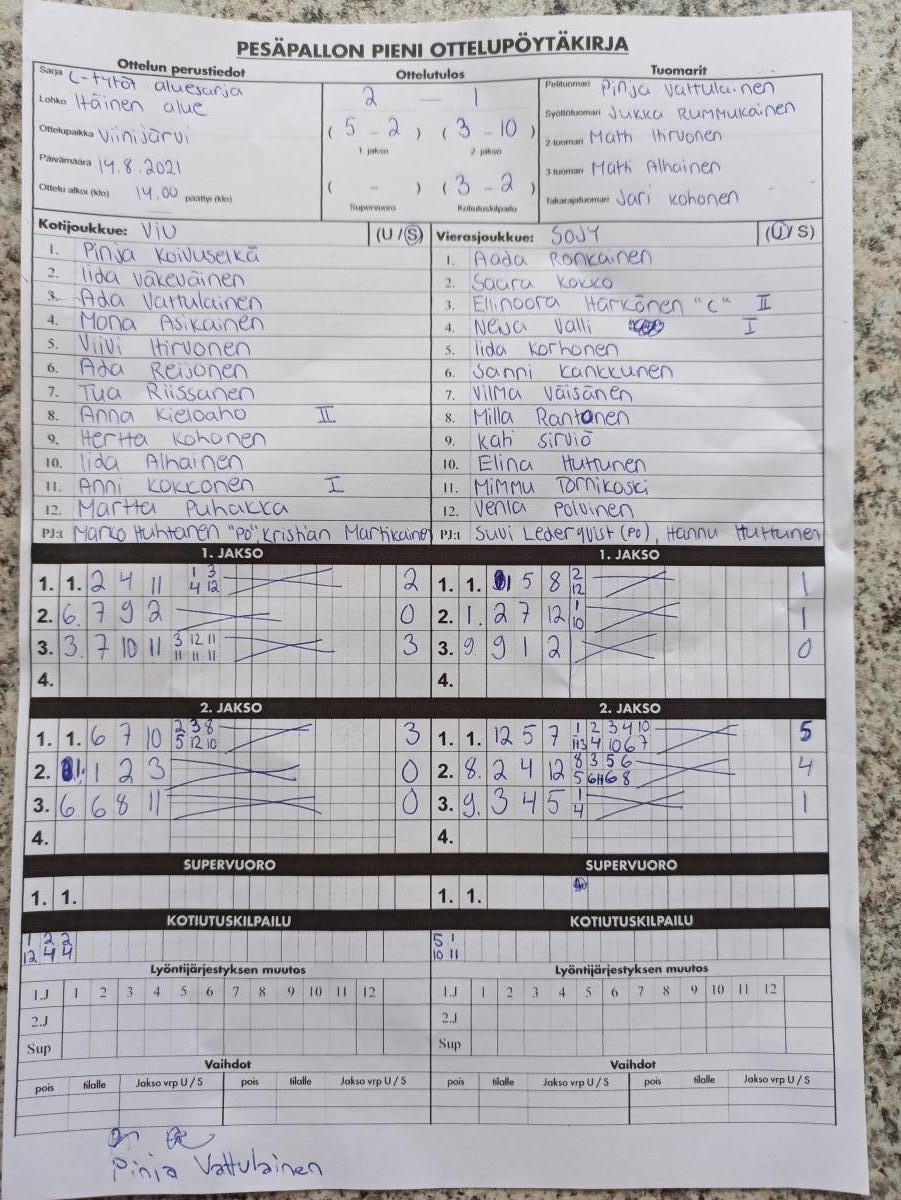 PESÄPALLON PIENI OTTELUPÖYTÄKIRJA
Ottelun perustiedot Ottelutulos Tuomarit
Sarja C-tytöt aluesarja
Lohko Itäinen alue
Ottelupaikka Viinijärvi
Päivämäärä 14.8.2021
Ottelu alkoi (klo) 14.00 päättyi (klo)
2 - 1
( 5 - 2 ) ( 3 - 10 )
1 jakso 2 jakso
( - ) ( 3 - 2 )
Supervuoro Kotiutuskilpailu
Pelituomari Pinja Vattulainen
Syöttötuomari Jukka Rummukainen
2-tuomari Matti Hirvonen
3-tuomari Matti Alhainen
Takarajatuomari Jari Kohonen
Kotijoukkue: ViU (U / S)
1. Pinja Koivuselkä
2. Iida Väkeväinen
3. Ada Vattulainen
4. Mona Asikainen
5. Viivi Hirvonen
6. Ada Reijonen
7. Tua Riissanen
8. Anna Kieloaho II
9. Hertta Kohonen
10. Iida Alhainen
11. Anni Kokkonen I
12. Martta Puhakka
PJ:t Marko Huhtanen "PO", Kristian Martikainen
Vierasjoukkue: SOJY (U / S)
1. Aada Ronkainen
2. Saara Kokko
3. Ellinoora Härkönen "C" II
4. Neija Valli I
5. Iida Korhonen
6. Sanni Kankkunen
7. Vilma Väisänen
8. Milla Rantanen
9. Kati Sirviö
10. Elina Huttunen
11. Mimmu Tornikoski
12. Venla Polvinen
PJ:t Suvi Lederqvist (PO), Hannu Huttunen
1. JAKSO
1. 1. 2 4 11 1 3 2
4 12
2. 6. 7 9 2 0
3. 3. 7 10 11 3 12 11 3
11 11 11
4.
1. JAKSO
1. 1. 5 8 2 1
12
2. 1. 2 7 12 1 1
10
3. 9. 9 1 2 0
4.
2. JAKSO
1. 1. 6 7 10 2 3 8 3
5 12 10
2. 1 2 3 0
3. 6. 6 8 11 0
4.
2. JAKSO
1. 1. 12 5 7 1 2 3 4 10 5
4 10 6 7
2. 8. 2 4 12 8 3 5 6 4
5 6 8
3. 9. 3 4 5 1 1
4
4.
SUPERVUORO
1. 1.
SUPERVUORO
1. 1.
KOTIUTUSKILPAILU
1 2 2
12 4 4
KOTIUTUSKILPAILU
5 1
10 11
Lyöntijärjestyksen muutos
1.J 1 2 3 4 5 6 7 8 9 10 11 12
2.J
Sup
Lyöntijärjestyksen muutos
1.J 1 2 3 4 5 6 7 8 9 10 11 12
2.J
Sup
Vaihdot
pois tilalle Jakso vrp U / S pois tilalle Jakso vrp U / S
Vaihdot
pois tilalle Jakso vrp U / S pois tilalle Jakso vrp U / S
Pinja Vattulainen